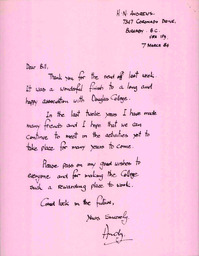 H. N. ANDREWS
7347 CORONADO DRIVE,
BURNABY B.C.
7 MARCH 84
Dear Bill,
Thank you for the send off last week.
It was a wonderful finish to a long and
happy association with Douglas College.
In the last twelve years I have made
many friends and I hope that we can
continue to meet on the activities yet to
take place for many years to come.
Please pass on my good wishes to
everyone and for making the College
such a rewarding place to work.
Good luck in the future.
Yours Sincerely,
Andy.